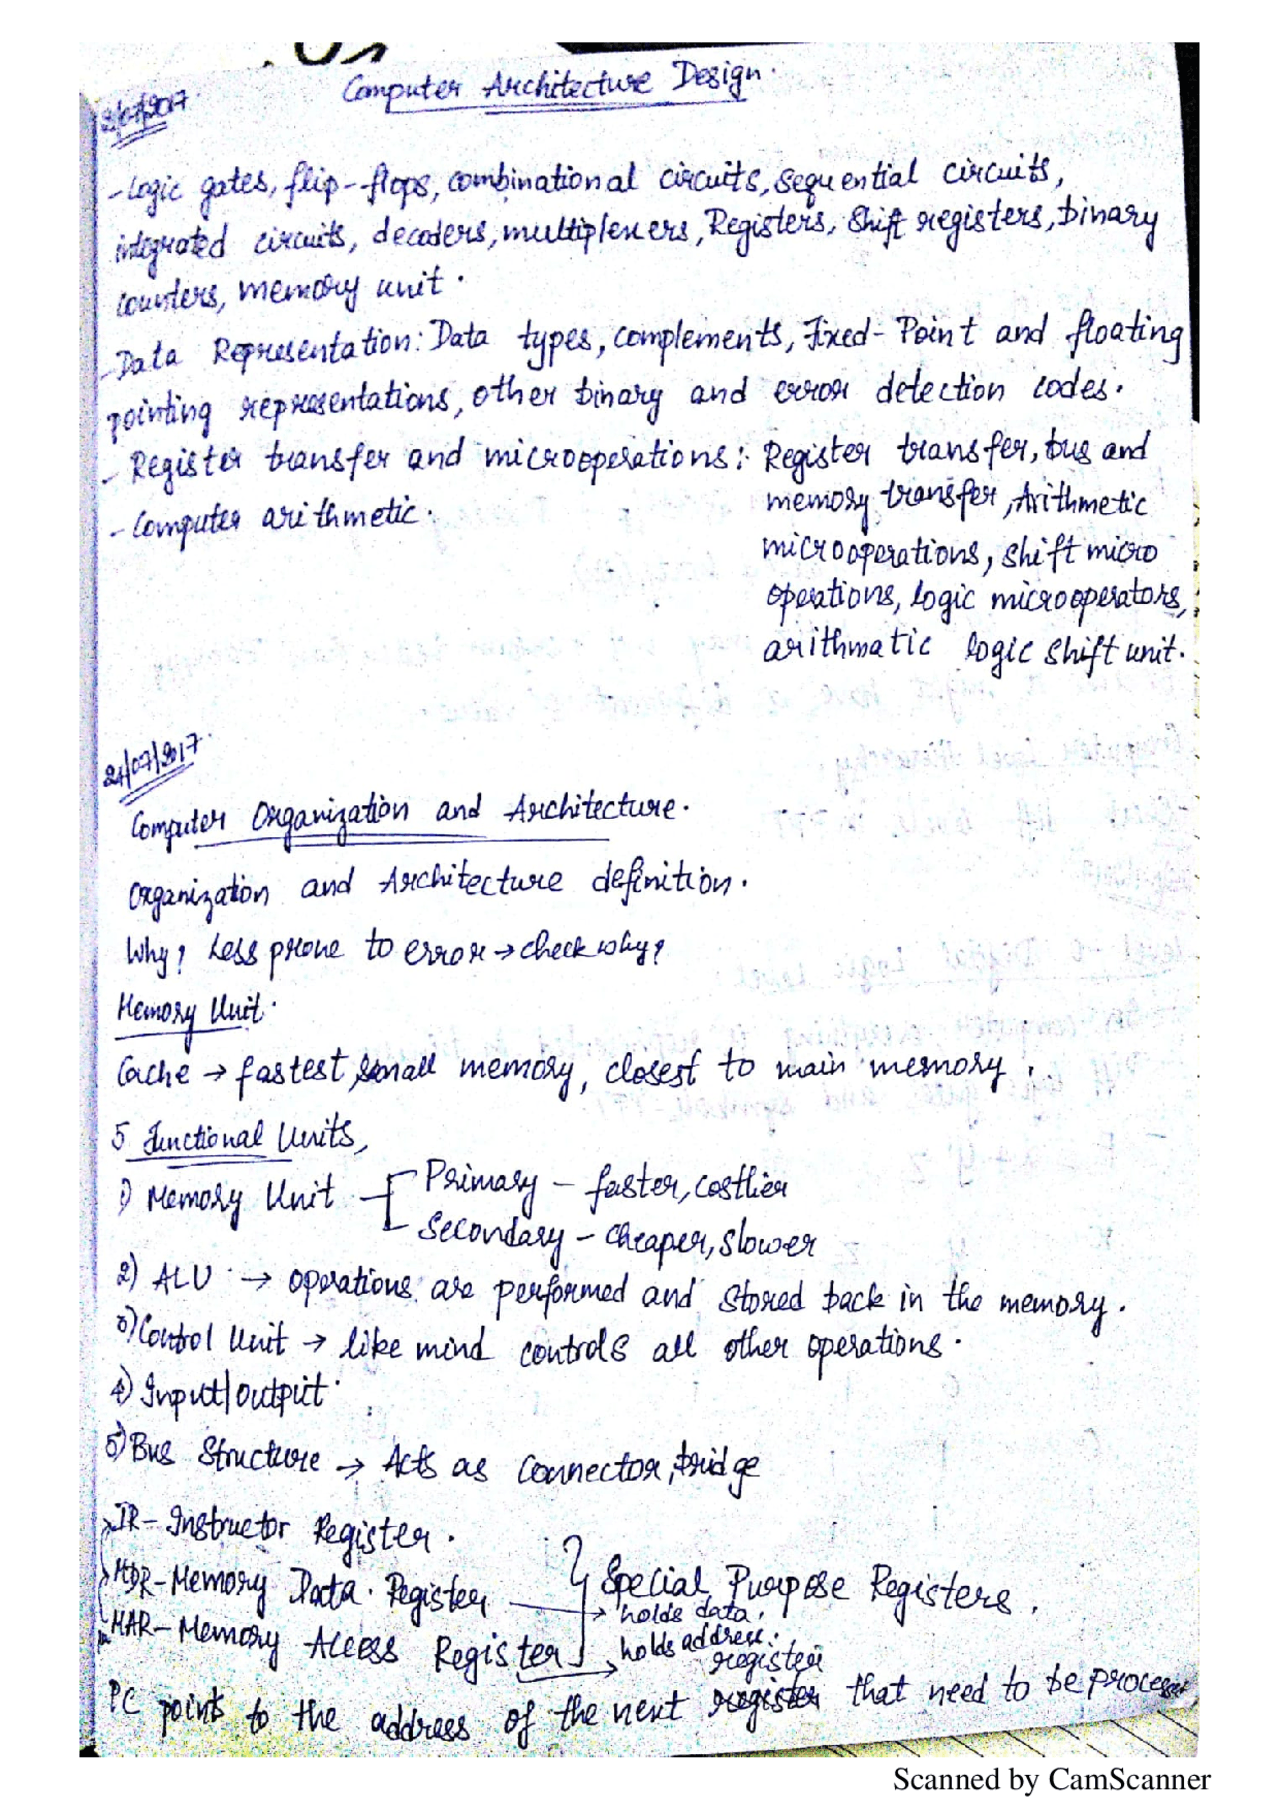 Computer Architecture Design.
/07/2017
- Logic gates, flip-flops, combinational circuits, sequential circuits,
integrated circuits, decoders, multiplexers, Registers, Shift registers, binary
counters, memory unit.
- Data Representation: Data types, complements, Fixed-Point and floating
pointing representations, other binary and error detection codes.
- Register transfer and microoperations: Register transfer, bus and
memory transfer, Arithmetic
- Computer arithmetic.
microoperations, shift micro
operations, logic microoperators,
arithmatic logic shift unit.
24/07/2017
Computer Organization and Architecture.
Organization and Architecture definition.
Why? Less prone to error → check why?
Memory Unit.
Cache → fastest small memory, closest to main memory.
5 Functional Units,
1) Memory Unit Primary - faster, costlier
Secondary - cheaper, slower
2) ALU → operations are performed and stored back in the memory.
3) Control Unit → like mind controls all other operations.
4) Input/output
5) Bus Structure → Acts as connector, bridge
IR - Instructor Register.
MDR - Memory Data Register Special Purpose Registers.
→ holds data.
MAR - Memory Access Register → holds address.
register
PC points to the address of the next register that need to be process
Scanned by CamScanner